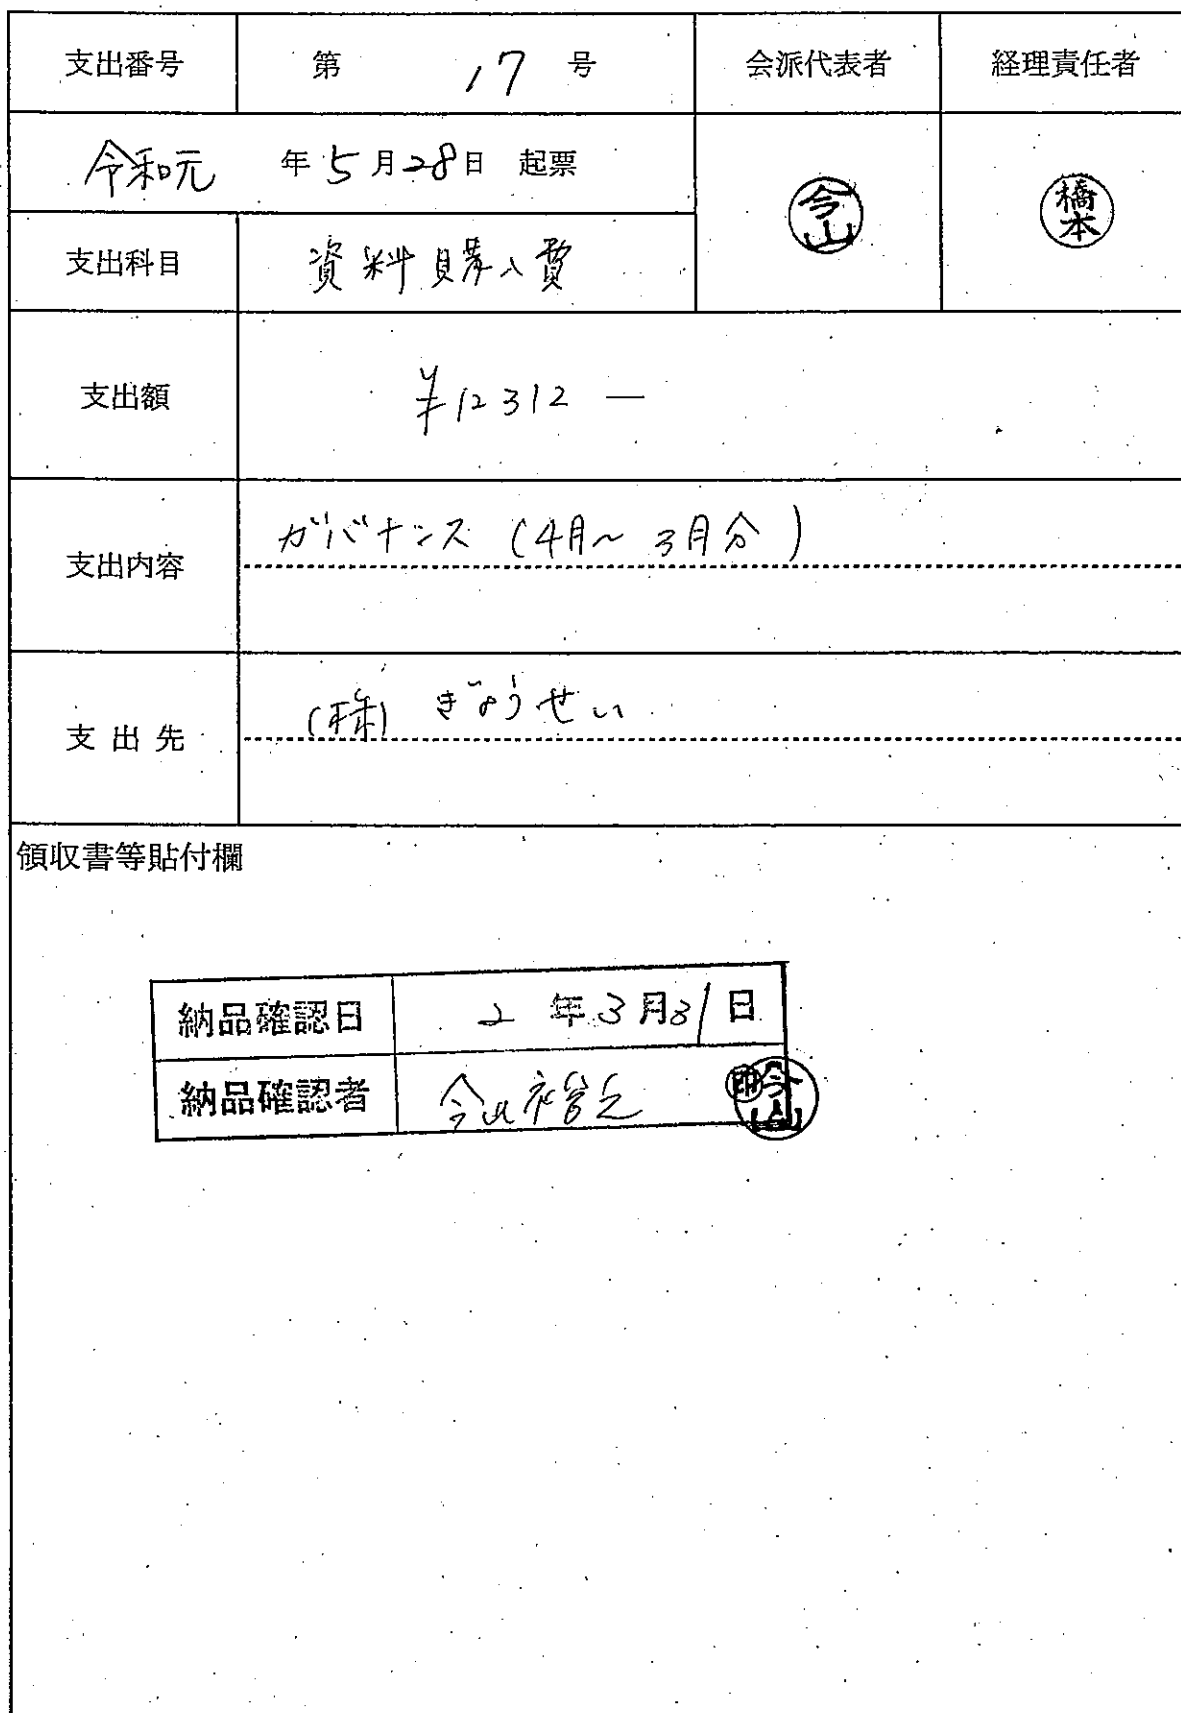 支出番号 第 17 号 会派代表者 経理責任者
令和元 年 5 月 28 日 起票
今山 橋本
支出科目 資料購入費
支出額 ¥12312 —
支出内容 ガバナンス (4月~3月分)
支出先 (株) ぎょうせい
領収書等貼付欄
納品確認日 2 年 3 月 31 日
納品確認者 今山 裕之 印 今山